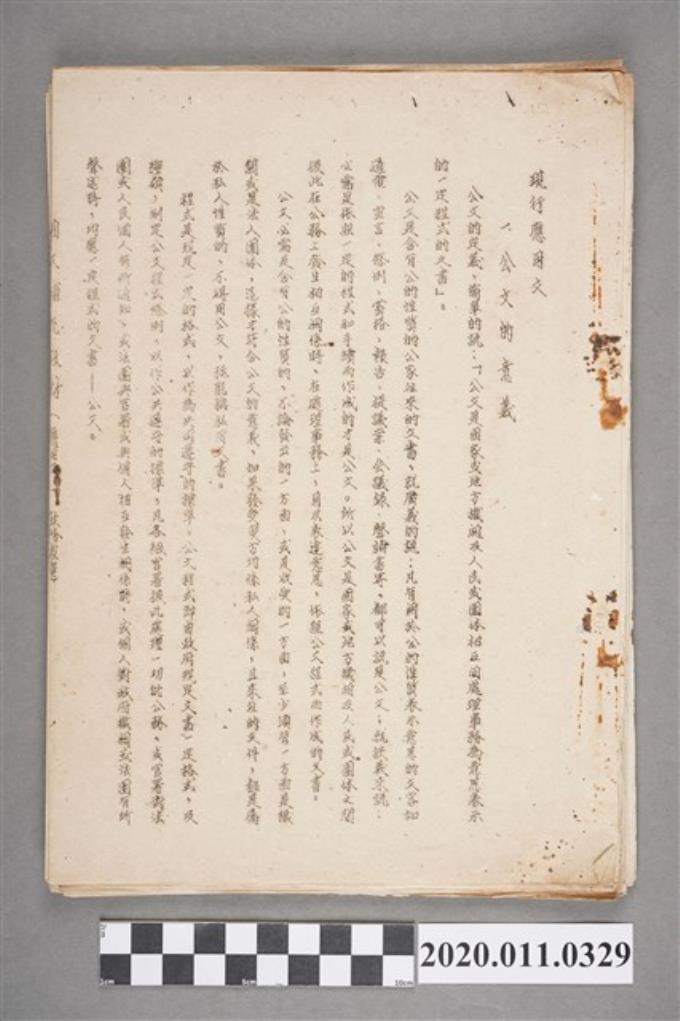 現行應用文
一、公文的意義
公文的定義，簡單的說：「公文是國家或地方機關及人民或團体相互間處理事務為意思表示
的一定程式的文書」。
公文是含有公的性質的公家往來的文書，就廣義的說：凡有關於公的性質表示意思的文字如
通電、宣言、條例、資格、報告、提議案、會議錄、聲請書等，都可以說是公文；就狹義來說：
必需是依照一定的程式和手續而作成的才是公文。所以公文是國家或地方機關及人民或團体之間
彼此在公務上發生相互關係時，在處理事務上，用以表達意見，依照公文程式而作成的文書。
公文必需是含有公的性質的，不論發出的一方面，或是收受的一方面，至少須有一方面是機
關或是法人團体，這樣才符合公文的意義，如果發受雙方均係私人關係，且來往的文件，都是屬
於私人性質的，不須用公文，祇能稱私用文書。
程式是規定一定的格式，以作為共同遵守的標準。公文程式即由政府規定文書一定格式，及
種類，制定公文程式條例，以作公共遵守的標準，凡各級官署據此處理一切的公務，或官署對法
團或人民個人有所通知，或法團與官署或與個人相互發生關係時，或個人對政府機關或法團有所
聲述時，均應一定程式的文書——公文。
2020.011.0329
1cm
5cm
10cm